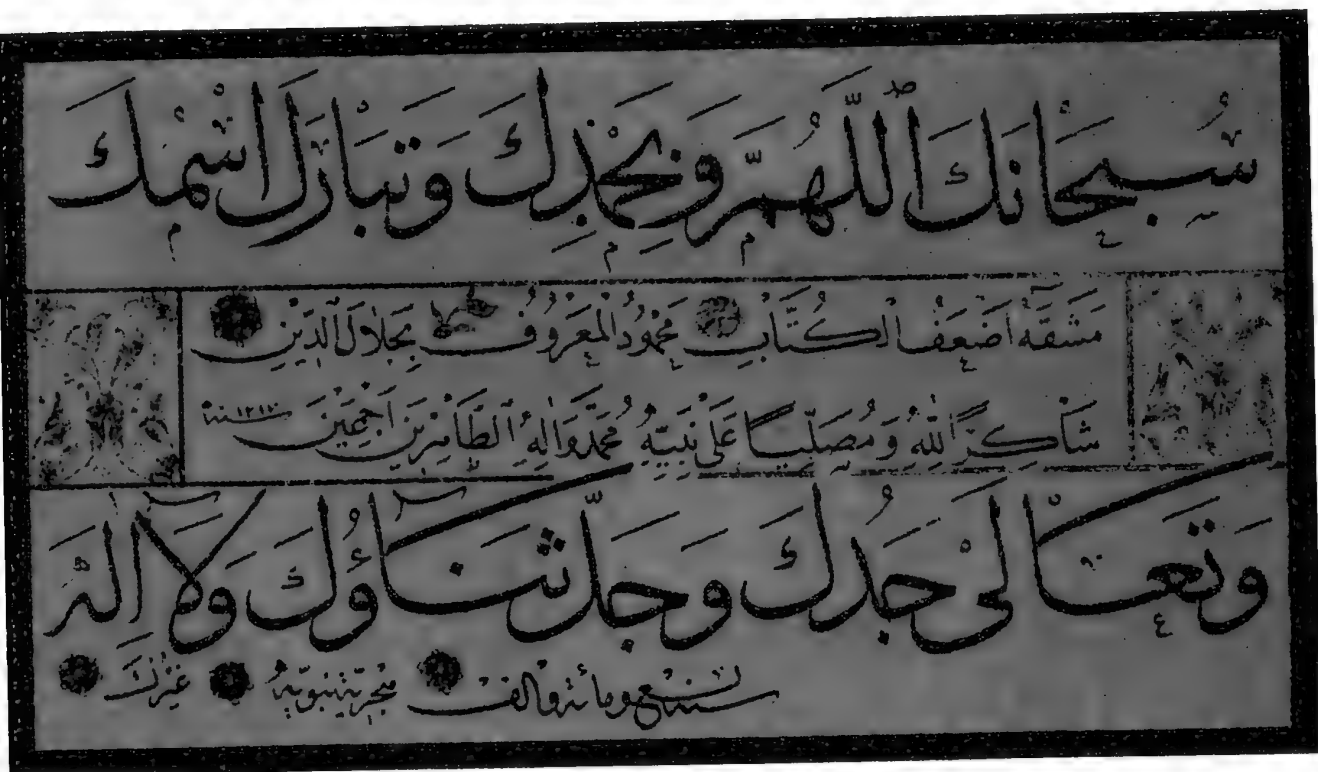 سُبْحَانَكَ اللَّهُمَّ وَبِحَمْدِكَ وَتَبَارَكَ اسْمُكَ
مَشَقَهُ أَضْعَفُ الكُتَّابِ مَحْمُودُ الْمَعْرُوفُ بِجَلَالِ الدِّينِ
شَاكِرًا لِلّٰهِ وَمُصَلِّيًا عَلَى نَبِيِّهِ مُحَمَّدٍ وَآلِهِ الطَّاهِرِينَ أَجْمَعِينَ
وَتَعَالَى جَدُّكَ وَجَلَّ ثَنَاؤُكَ وَلَا إِلٰهَ
سنة تسع ومائة والف هجرية نبوية غَيْرُكَ